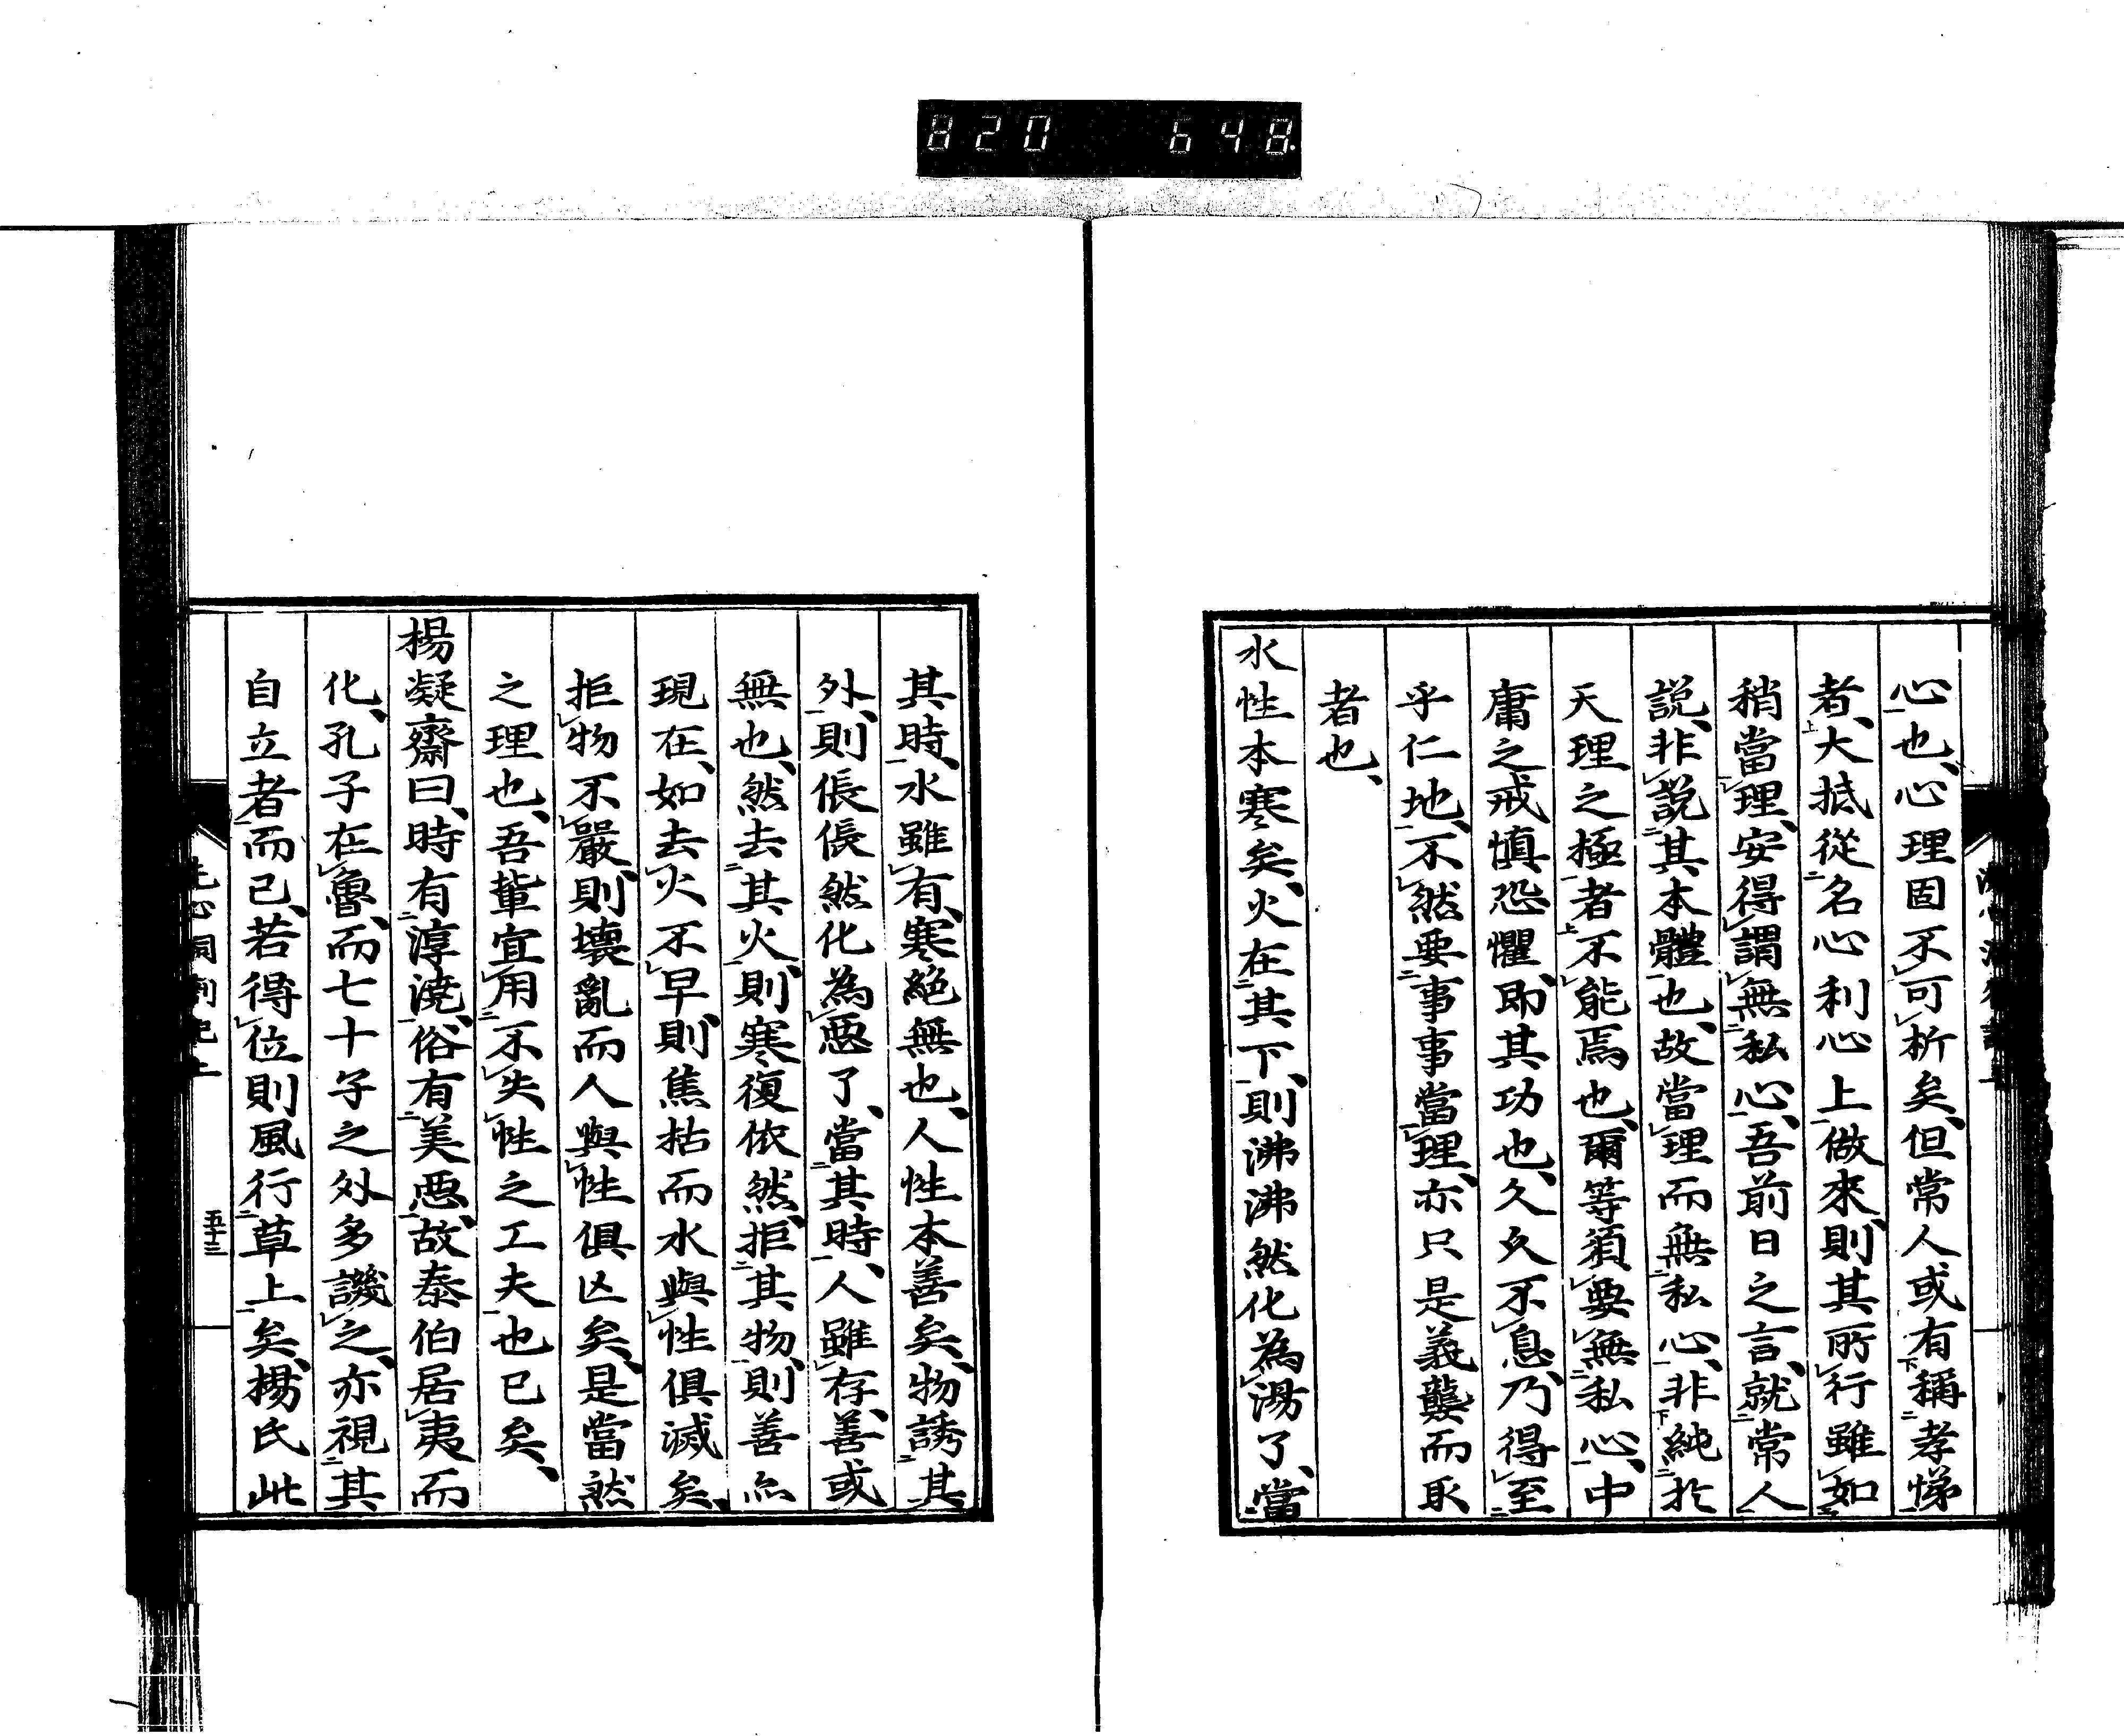 820 648.
心也、心理固不可析矣、但常人或有稱孝悌
者、大抵從名心利心上做來、則其所行雖如
稍當理、安得謂無私心、吾前日之言、就常人
說、非說其本體也、故當理而無私心、非純於
天理之極者不能焉也、爾等須要無私心、中
庸之戒慎恐懼、即其功也、久久不息、乃得至
乎仁地、不然要事事當理、亦只是義襲而取
者也、
水性本寒矣、火在其下、則沸沸然化為湯了、當
其時、水雖有、寒絕無也、人性本善矣、物誘其
外、則倀倀然化為惡了、當其時、人雖存、善或
無也、然去其火、則寒復依然、拒其物、則善亦
現在、如去火不早、則焦枯而水與性俱滅矣、
拒物不嚴、則壞亂而人與性俱亡矣、是當然
之理也、吾輩宜用不失性之工夫也已矣、
楊凝齋曰、時有淳澆、俗有美惡、故泰伯居夷而
化、孔子在魯、而七十子之外多譏之、亦視其
自立者而已、若得位則風行草上矣、楊氏此
五十三